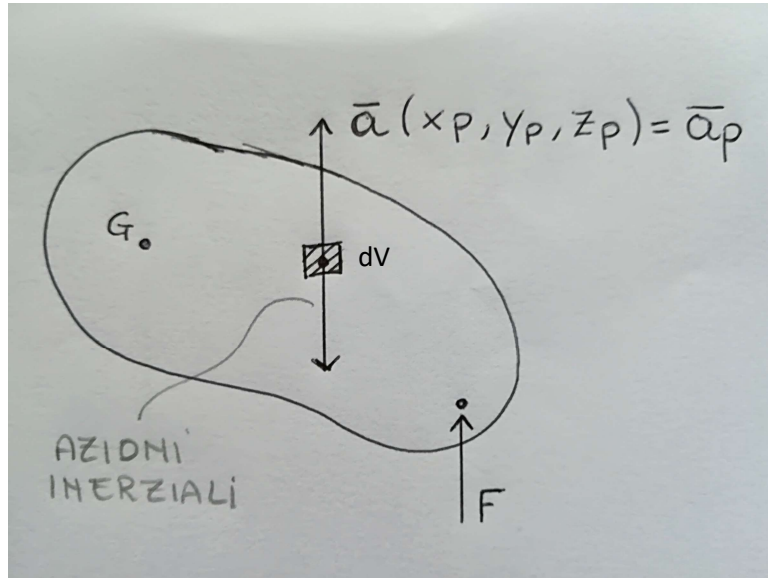 ā (xp, yp, zp) = āp
G.
dV
AZIONI
INERZIALI
F